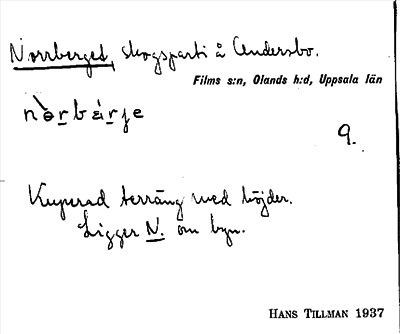 Norrberget, skogsparti å Andersbo.
Films s:n, Olands h:d, Uppsala län
nòrbárje
9.
Kuperad terräng med höjder.
Ligger N. om byn.
HANS TILLMAN 1937